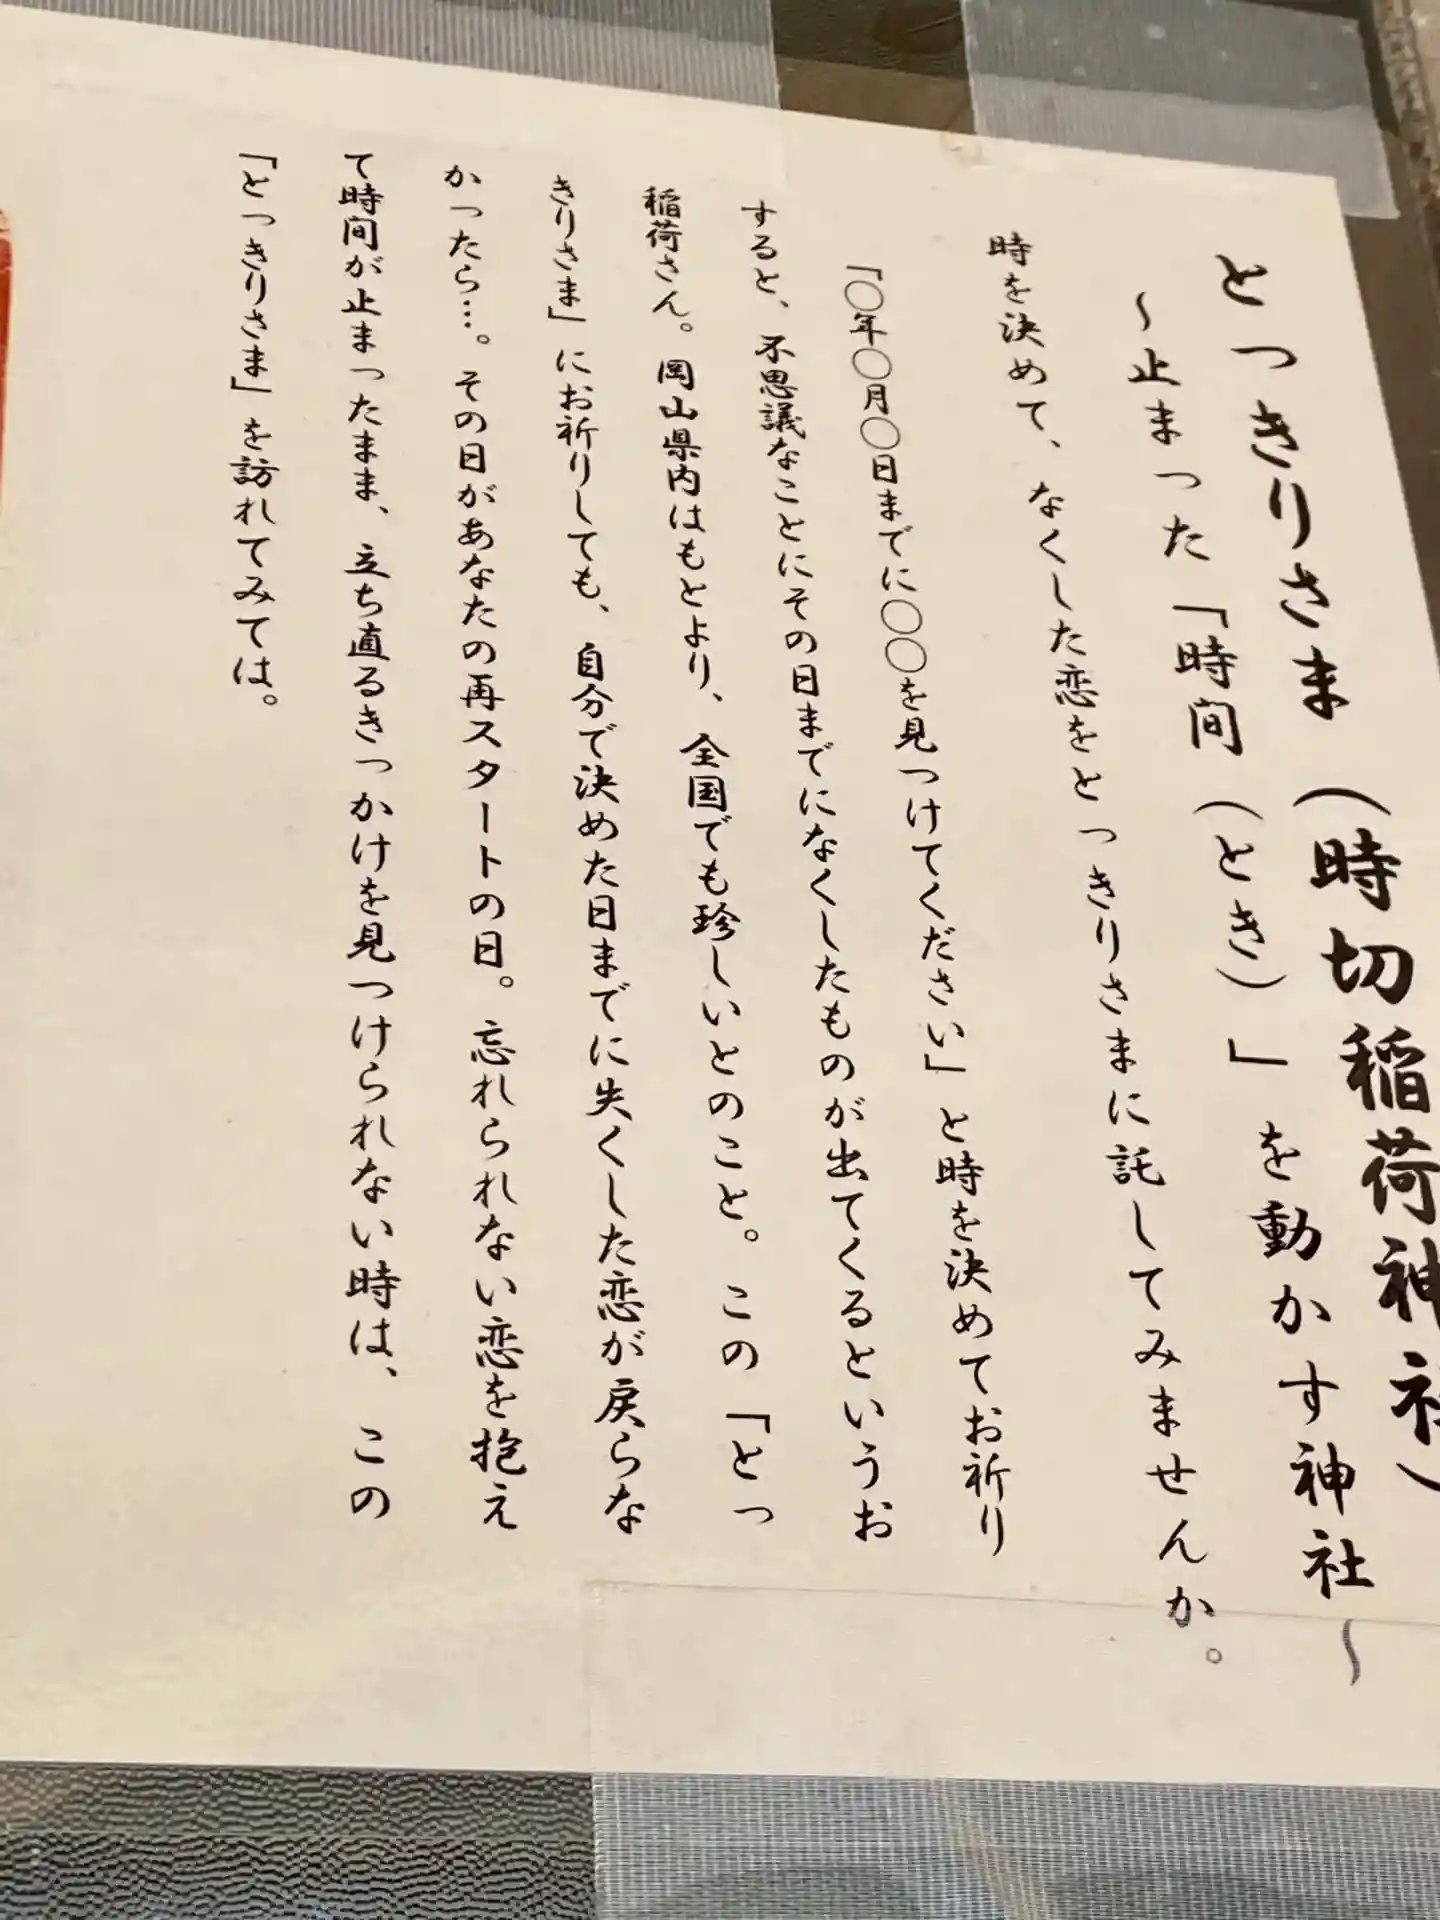 とっきりさま（時切稲荷神社）
〜止まった「時間（とき）」を動かす神社〜
時を決めて、なくした恋をとっきりさまに託してみませんか。
「〇年〇月〇日までに〇〇を見つけてください」と時を決めてお祈り
すると、不思議なことにその日までになくしたものが出てくるというお
稲荷さん。岡山県内はもとより、全国でも珍しいとのこと。この「とっ
きりさま」にお祈りしても、自分で決めた日までに失くした恋が戻らな
かったら…。その日があなたの再スタートの日。忘れられない恋を抱え
て時間が止まったまま、立ち直るきっかけを見つけられない時は、この
「とっきりさま」を訪れてみては。